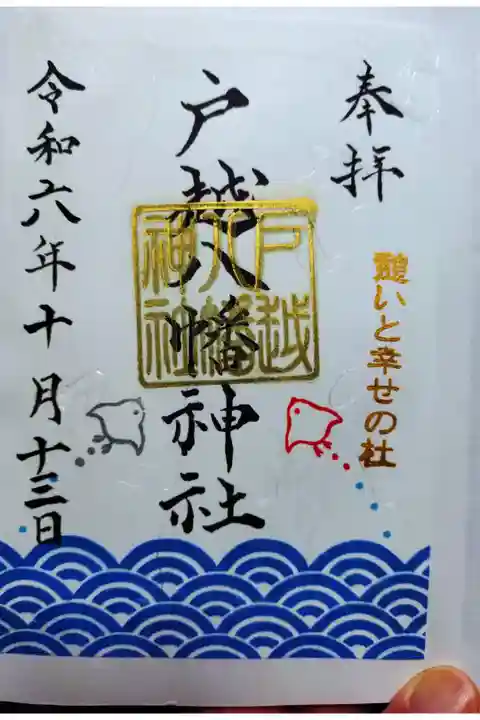 奉拝
憩いと幸せの杜
戸越八幡神社
戸越
八幡
神社
令和六年十月十三日